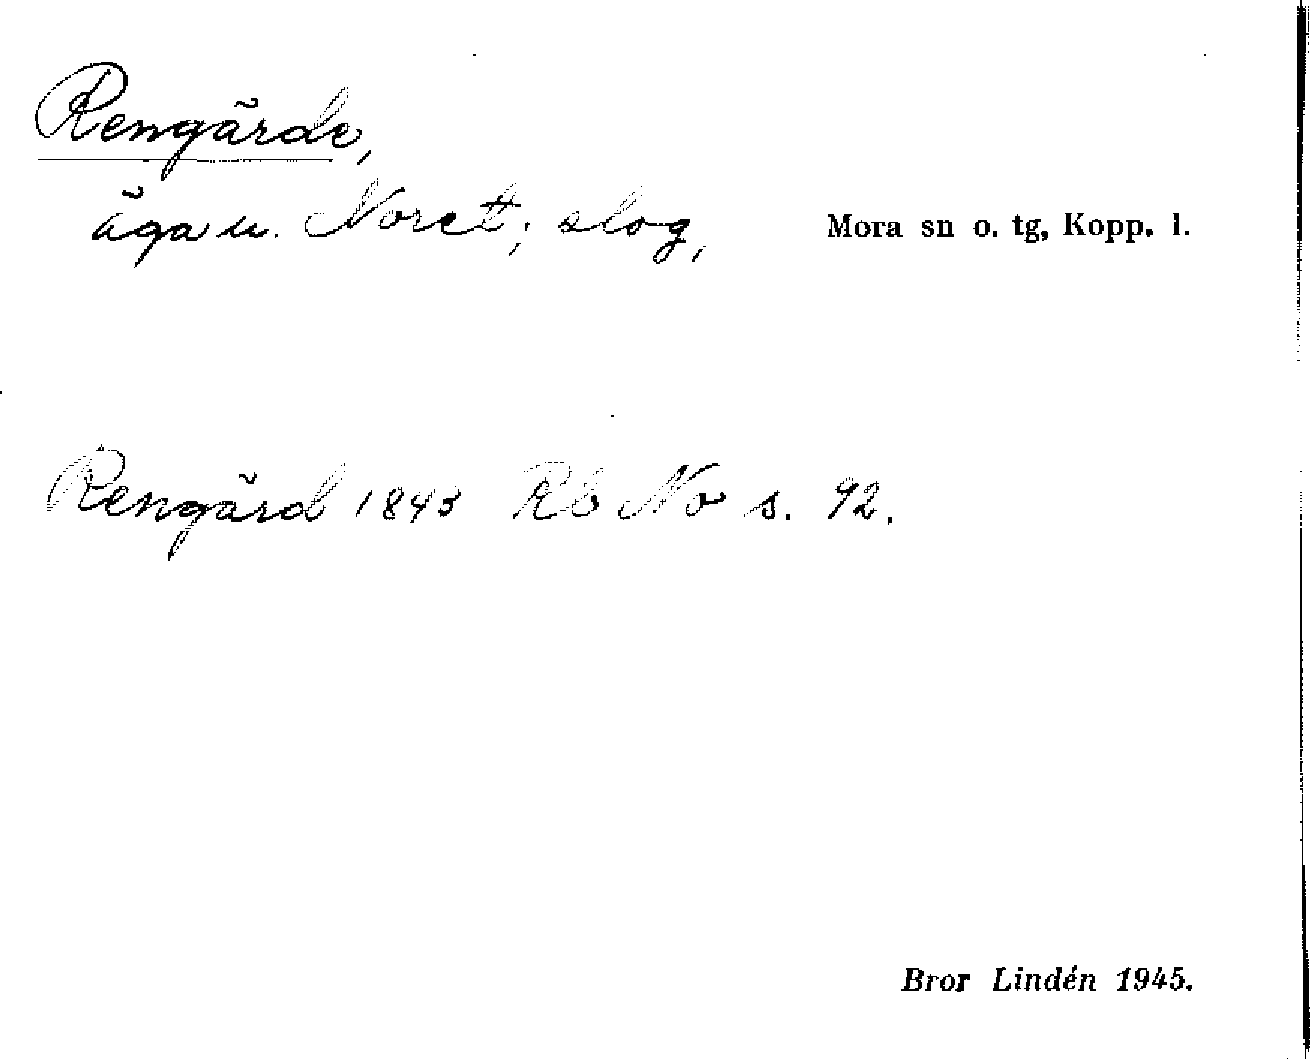 Rengärde,
äga u. Noret; slog, Mora sn o. tg, Kopp. l.
Rengärd 1843 Rb No s. 92.
Bror Lindén 1945.